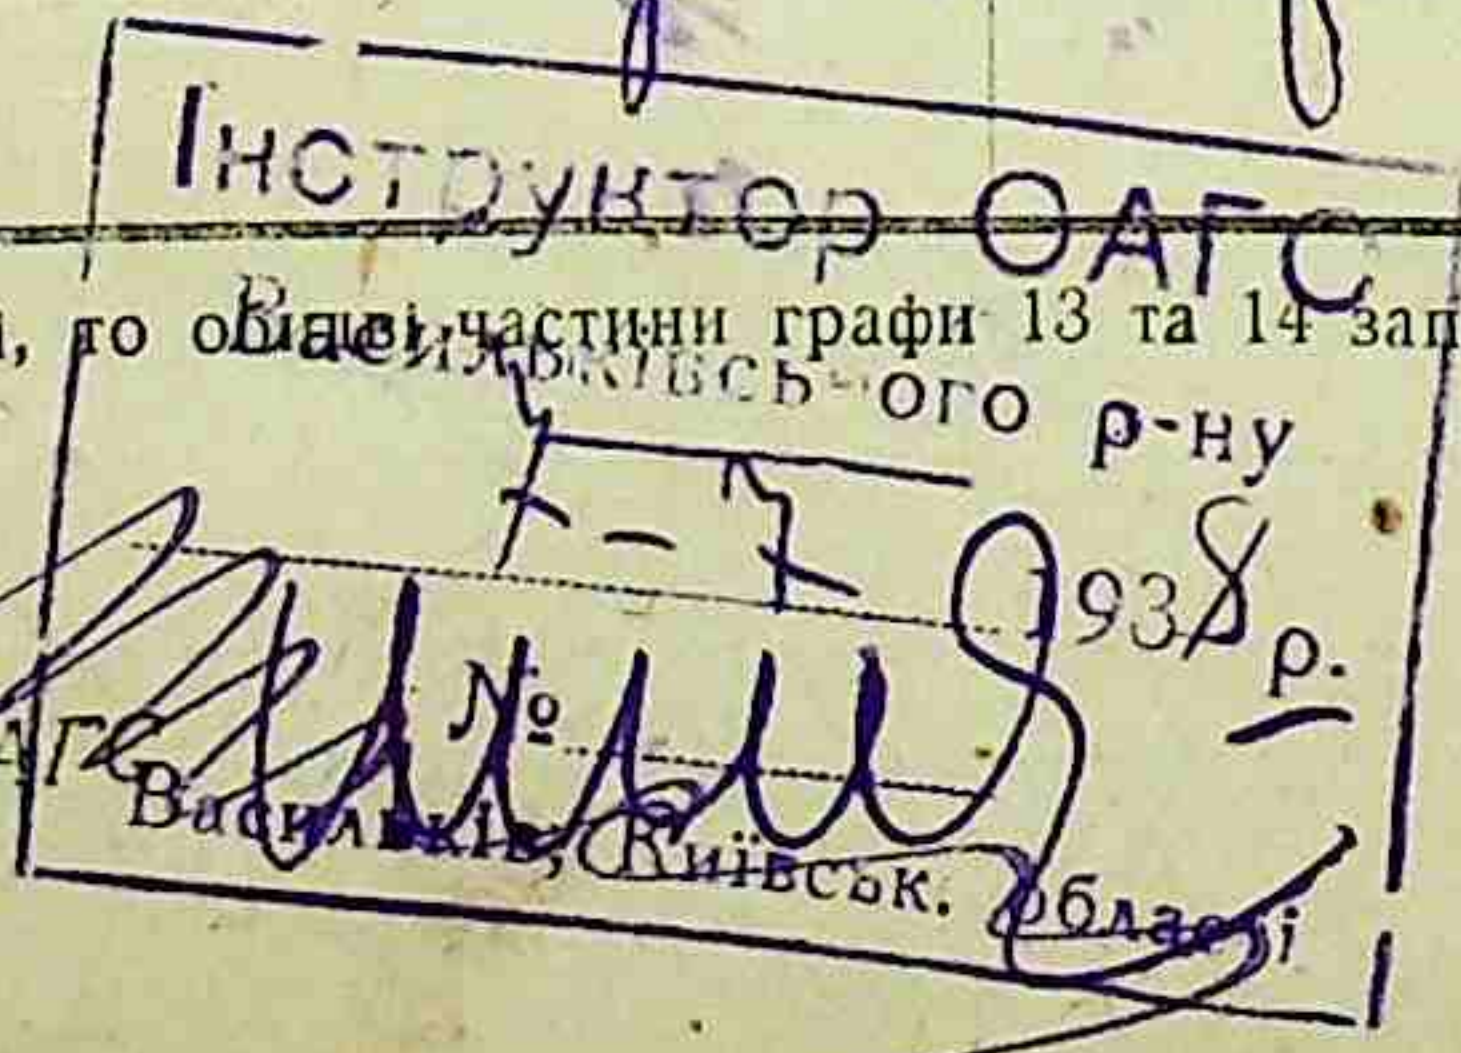 Інструктор ОАГС
то обидві частини графи 13 та 14 зап
Васильківського р-ну
1938 р.
№
АГС
Васильків, Київськ. області